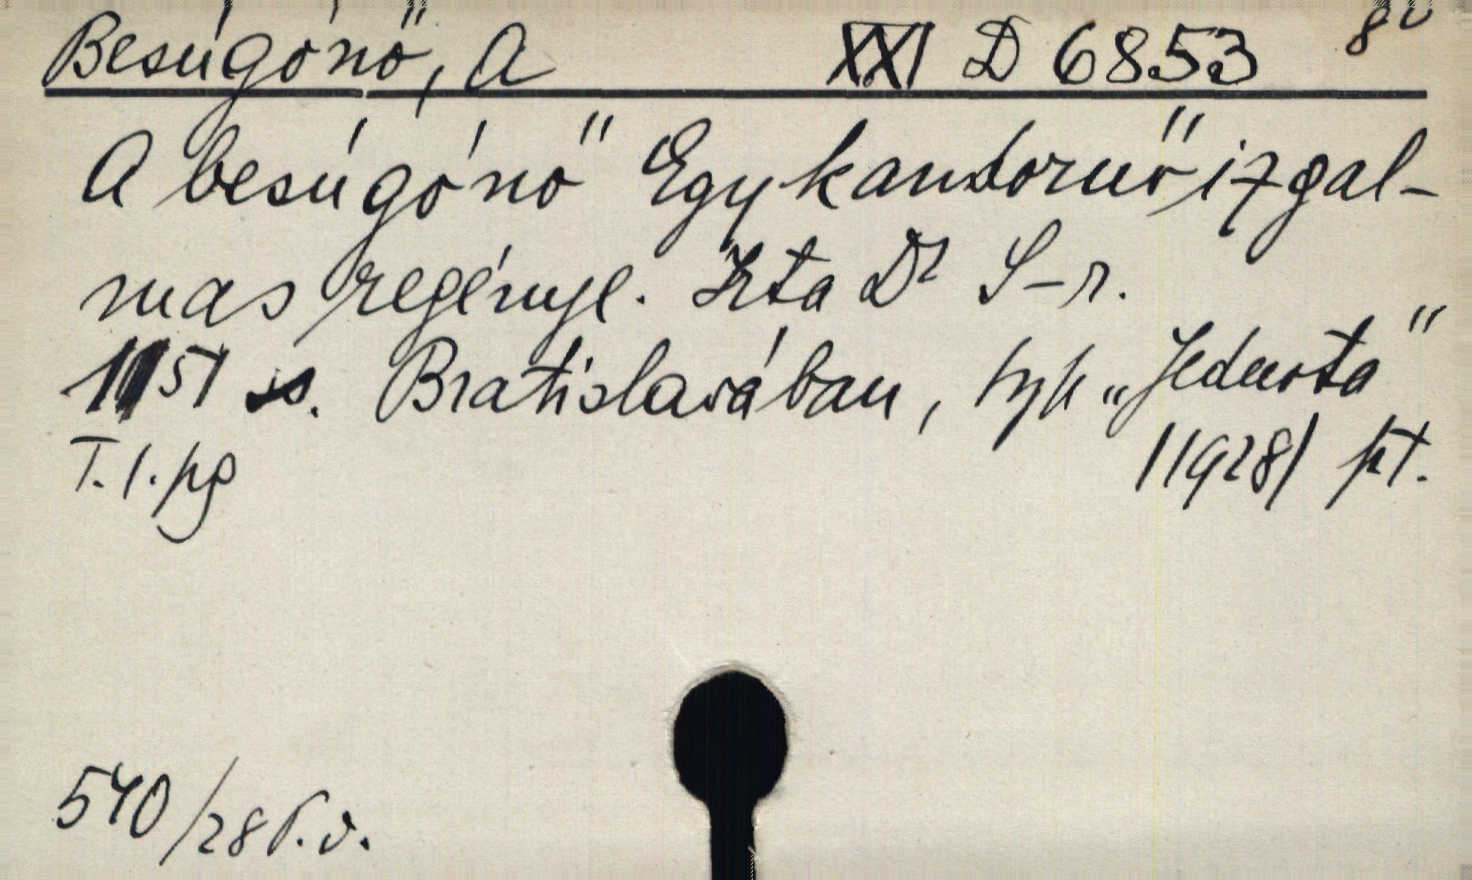 Besúgónő, A XXI D 6853 8°
A besúgónő Egy kandornő izgal-
mas regénye. Irta Dr S-r.
151 s. Bratislavában, typ „Jednota"
/1928/ kt.
T. l. pg
540/28 P. v.